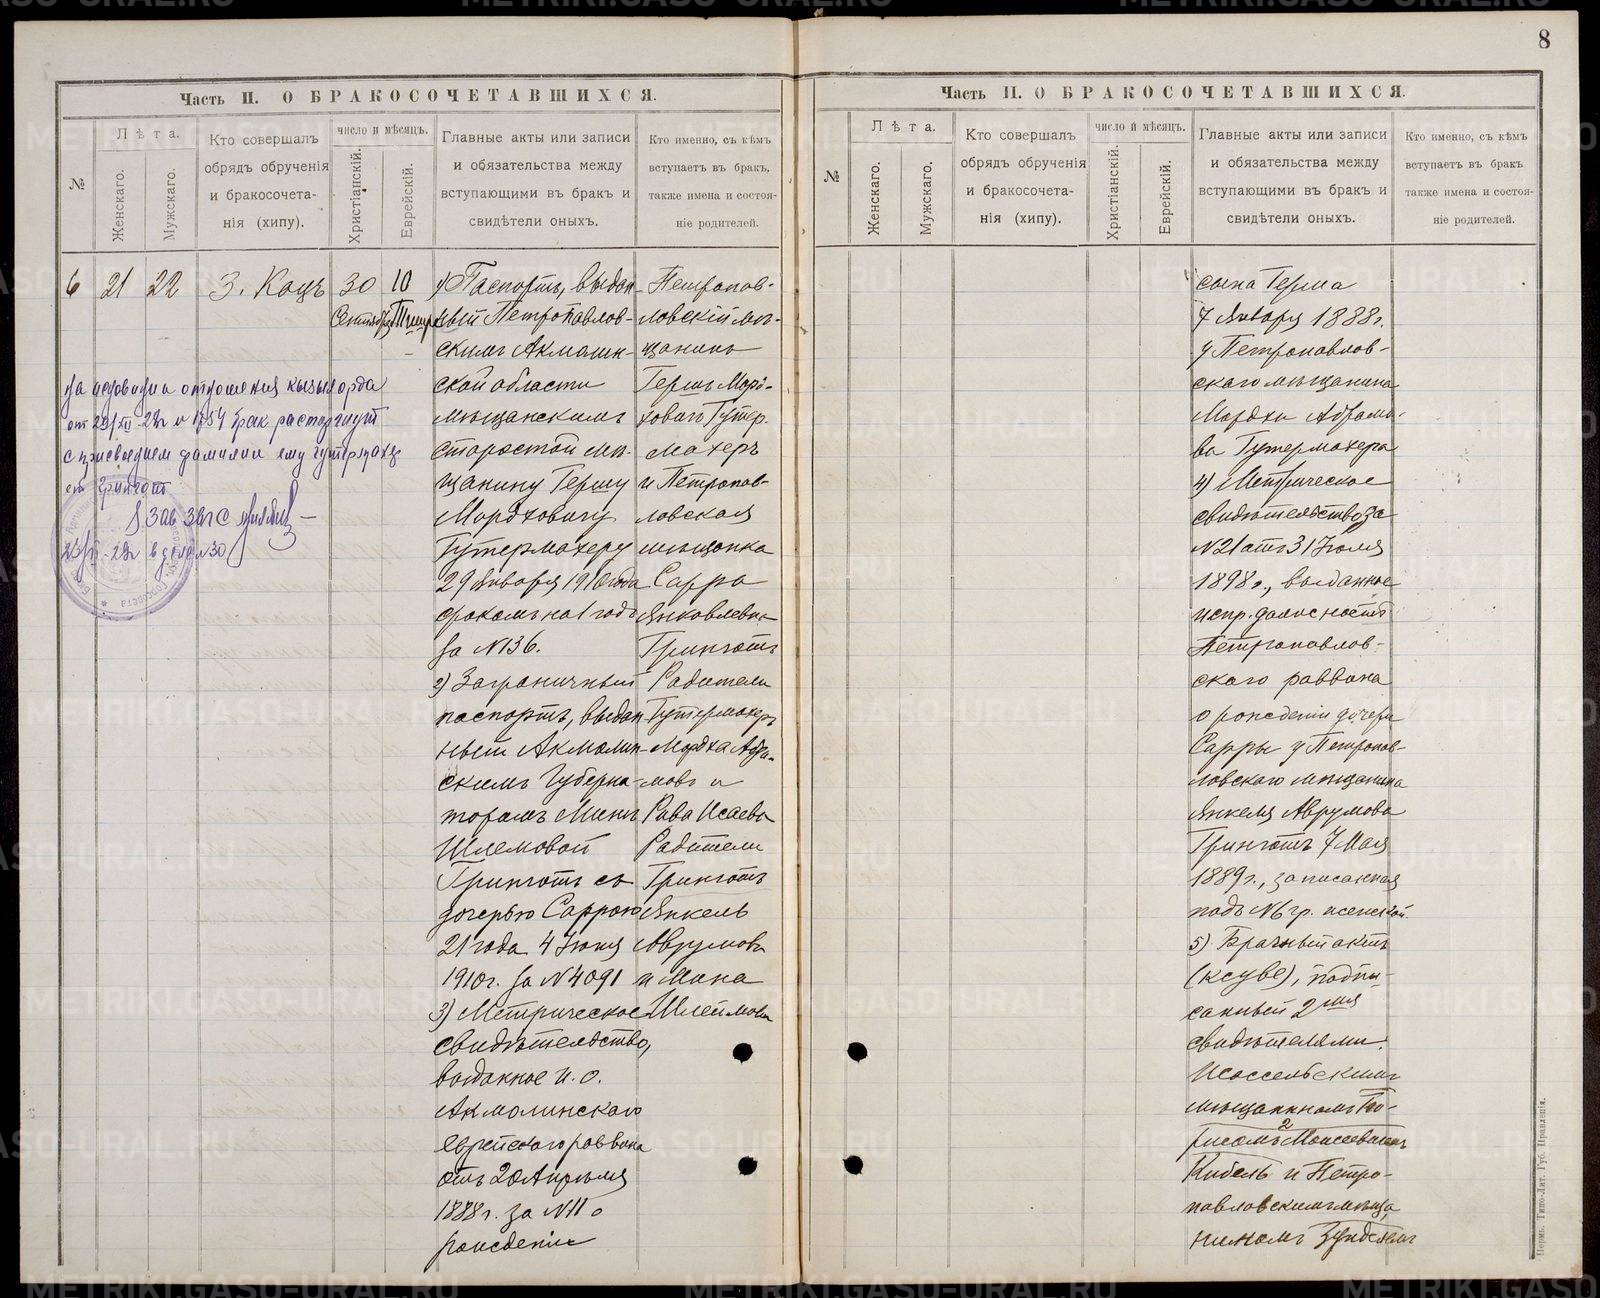 8
Часть II. О БРАКОСОЧЕТАВШИХСЯ.
№
Лѣта.
Женскаго.
Мужскаго.
Кто совершалъ
обрядъ обрученія
и бракосочета-
нія (хипу).
число и мѣсяцъ.
Христіанскій.
Еврейскій.
Главные акты или записи
и обязательства между
вступающими въ бракъ и
свидѣтели оныхъ.
Кто именно, съ кѣмъ
вступаетъ въ бракъ,
также имена и состоя-
ніе родителей.
6
21
22
З. Кацъ
30
Сентября
10
Тишри
1) Паспортъ, выдан-
ный Петропавлов-
скимъ Акмолин-
ской области
мѣщанскимъ
старостой мѣ-
щанину Гершу
Мордховичу
Гутермахеру
29 Января 1910 года
срокомъ на 1 годъ
за №136.
2) Заграничный
паспортъ, выдан-
ный Акмолин-
скимъ Губерна-
торомъ Минѣ
Шлемовой
Гринготъ съ
дочерью Саррою
21 года 4 Іюня
1910 г. за №4091
3) Метрическое
свидѣтельство,
выданное и. о.
Акмолинскаго
еврейскаго раввина
отъ 20 Апрѣля
1888 г. за №11 о
рожденіи
Петропав-
ловскій мѣ-
щанинъ
Гершъ Морд-
ховичъ Гутер-
махеръ
и Петропав-
ловская
мѣщанка
Сарра
Янковлевна
Гринготъ
Родители
Гутермахеръ
Мордха Абра-
мовъ и
Рива Исаева
Родители
Гринготъ
Янкель
Аврумовъ
и Мина
Шлеймова
На основании отношения кызыл орда
от 23/XII-28г № 1754 брак расторгнут
с присвоением фамилии ему гутермахер
ей грингот
Зав Загс
в дело №30
Часть II. О БРАКОСОЧЕТАВШИХСЯ.
№
Лѣта.
Женскаго.
Мужскаго.
Кто совершалъ
обрядъ обрученія
и бракосочета-
нія (хипу).
число и мѣсяцъ.
Христіанскій.
Еврейскій.
Главные акты или записи
и обязательства между
вступающими въ бракъ и
свидѣтели оныхъ.
Кто именно, съ кѣмъ
вступаетъ въ бракъ,
также имена и состоя-
ніе родителей.
сына Герша
7 Января 1888 г.
у Петропавлов-
скаго мѣщанина
Мордхи Абрамо-
ва Гутермахера
4) Метрическое
свидѣтельство за
№21 отъ 31 Іюля
1898 г., выданное
испр. должность
Петропавлов-
скаго раввина
о рожденіи дочери
Сарры у Петропав-
ловскаго мѣщанина
Янкеля Аврумова
Гринготъ 7 Мая
1889 г., записанная
подъ №6 гр. женской.
5) Брачный актъ
(ксубе), подпи-
санный 2мя
свидѣтелями:
мѣщаниномъ Бо-
рисомъ Моисеевичемъ
Кибель и Петро-
павловскимъ мѣща-
ниномъ
Пермь. Типо-Лит. Губ. Правленія.
METRIKI.GASO-URAL.RU